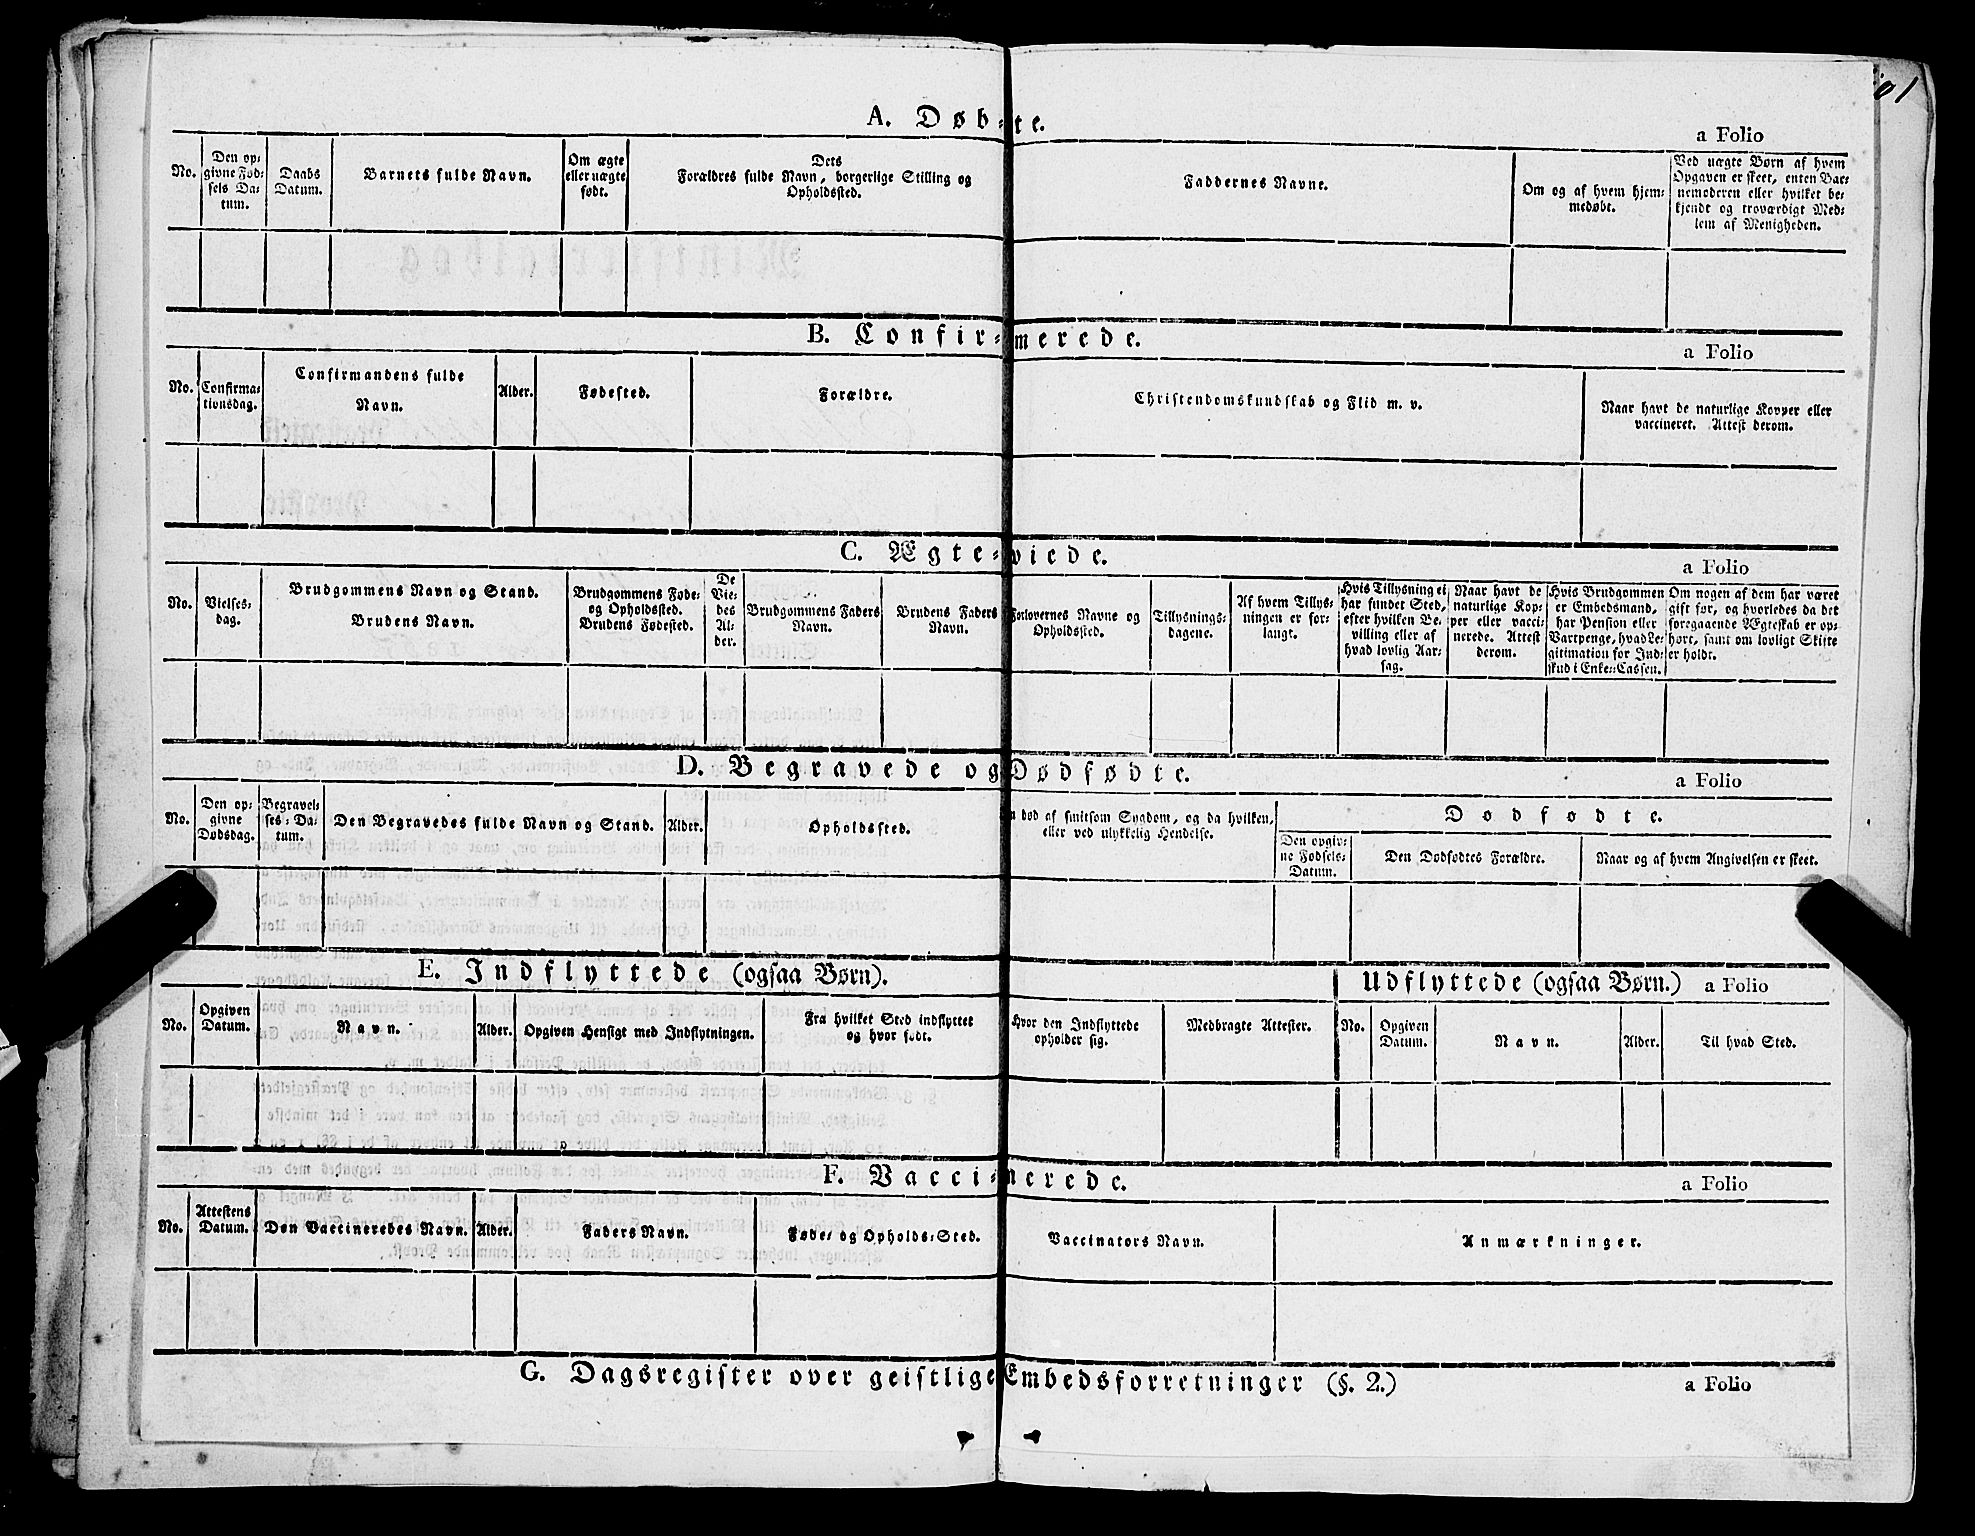 101
A. Døb-te.
a Folio
No.
Den op-
givne Fød-
sels Da-
tum.
Daabs
Datum.
Barnets fulde Navn.
Om ægte
eller uægte
født.
Dets
Forældres fulde Navn, borgerlige Stilling og
Opholdssted.
Faddernes Navne.
Om og af hvem hjem-
medøbt.
Ved uægte Børn af hvem
Opgaven er skeet, enten Bar-
nemoderen eller hvilket be-
kjendt og troværdigt Med-
lem af Menigheden.
B. Confir-merede.
a Folio
No.
Confirma-
tionsdag.
Confirmandens fulde
Navn.
Alder.
Fødested.
Forældre.
Christendomskundskab og Flid m. v.
Naar havt de naturlige Kopper eller
vaccineret. Attest derom.
C. Ægte-viede.
a Folio
No.
Vielses-
dag.
Brudgommens Navn og Stand.
Brudens Navn.
Brudgommens Føde-
og Opholdssted.
Brudens Fødested.
De
Vie-
des
Al-
der.
Brudgommens Faders
Navn.
Brudens Faders
Navn.
Forlovernes Navne og
Opholdssted.
Tillysnings-
dagene.
Af hvem Tillys-
ningen er for-
langt.
Hvis Tillysning ei
har fundet Sted,
efter hvilken Be-
villing eller af
hvad lovlig Aar-
sag.
Naar havt de
naturlige Kop-
per eller vacci-
nerede. Attest
derom.
Hvis Brudgommen
er Embedsmand,
har Pension eller
Vartpenge, hvad Le-
gitimation for Ind-
skud i Enke-Cassen.
Om nogen af dem har været
gift før, og hvorledes da det
foregaaende Ægteskab er op-
hørt, samt om lovligt Skifte
er holdt.
D. Begravede og Dødfødte.
a Folio
No.
Den op-
givne
Dødsdag.
Begravel-
ses-Da-
tum.
Den Begravedes fulde Navn og Stand.
Alder.
Opholdssted.
død af smitsom Sygdom, og da hvilken,
eller ved ulykkelig Hendelse.
Dødfødte.
Den opgiv-
ne Fødsels-
Datum.
Den Dødfødtes Forældre.
Naar og af hvem Angivelsen er skeet.
E. Indflyttede (ogsaa Børn).
Udflyttede (ogsaa Børn.) a Folio
No.
Opgiven
Datum.
Navn.
Alder.
Opgiven Hensigt med Indflytningen.
Fra hvilket Sted indflyttet
og hvor født.
Hvor den Indflyttede
opholder sig.
Medbragte Attester.
No.
Opgiven
Datum.
Navn.
Alder.
Til hvad Sted.
F. Vacci-nerede.
a Folio
No.
Attestens
Datum.
Den Vaccineredes Navn.
Alder.
Faders Navn.
Føde- og Opholds-Sted.
Vaccinators Navn.
Anmærkninger.
G. Dagsregister over geistlige Embedsforretninger (§. 2.)
a Folio